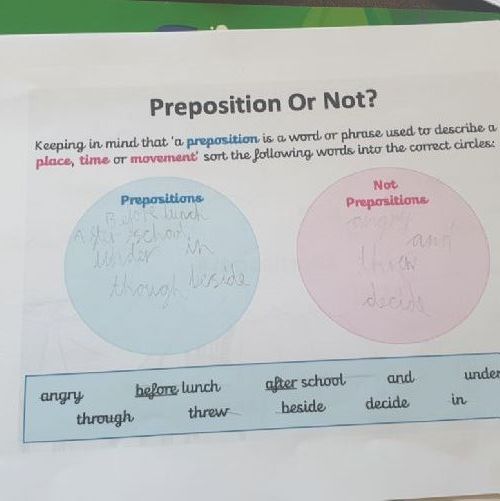 Preposition Or Not?
Keeping in mind that 'a preposition is a word or phrase used to describe a
place, time or movement' sort the following words into the correct circles:
Prepositions
Before lunch
After school
under in
though beside
Not
Prepositions
angry
and
threw
decide
angry before lunch after school and under
through threw beside decide in